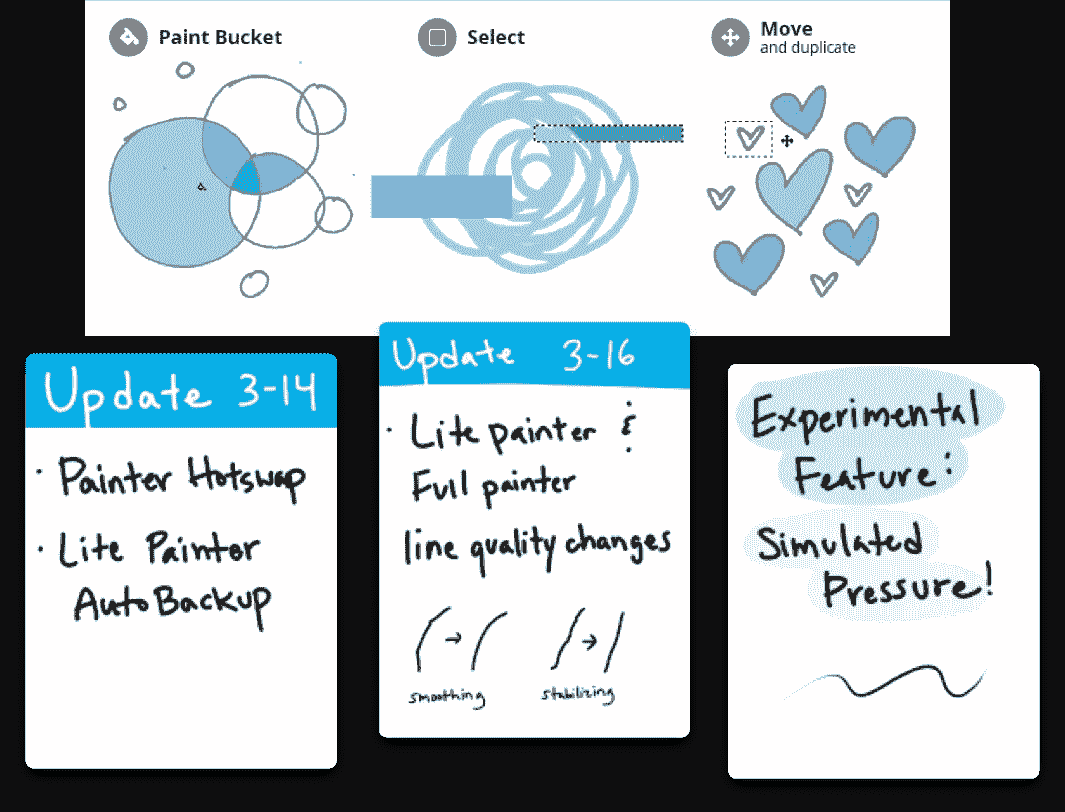 Paint Bucket
Select
Move
and duplicate
Update 3-14
· Painter Hotswap
· Lite Painter
Auto Backup
Update 3-16
· Lite painter &
Full painter
line quality changes
→ →
smoothing stabilizing
Experimental
Feature:
Simulated
Pressure!